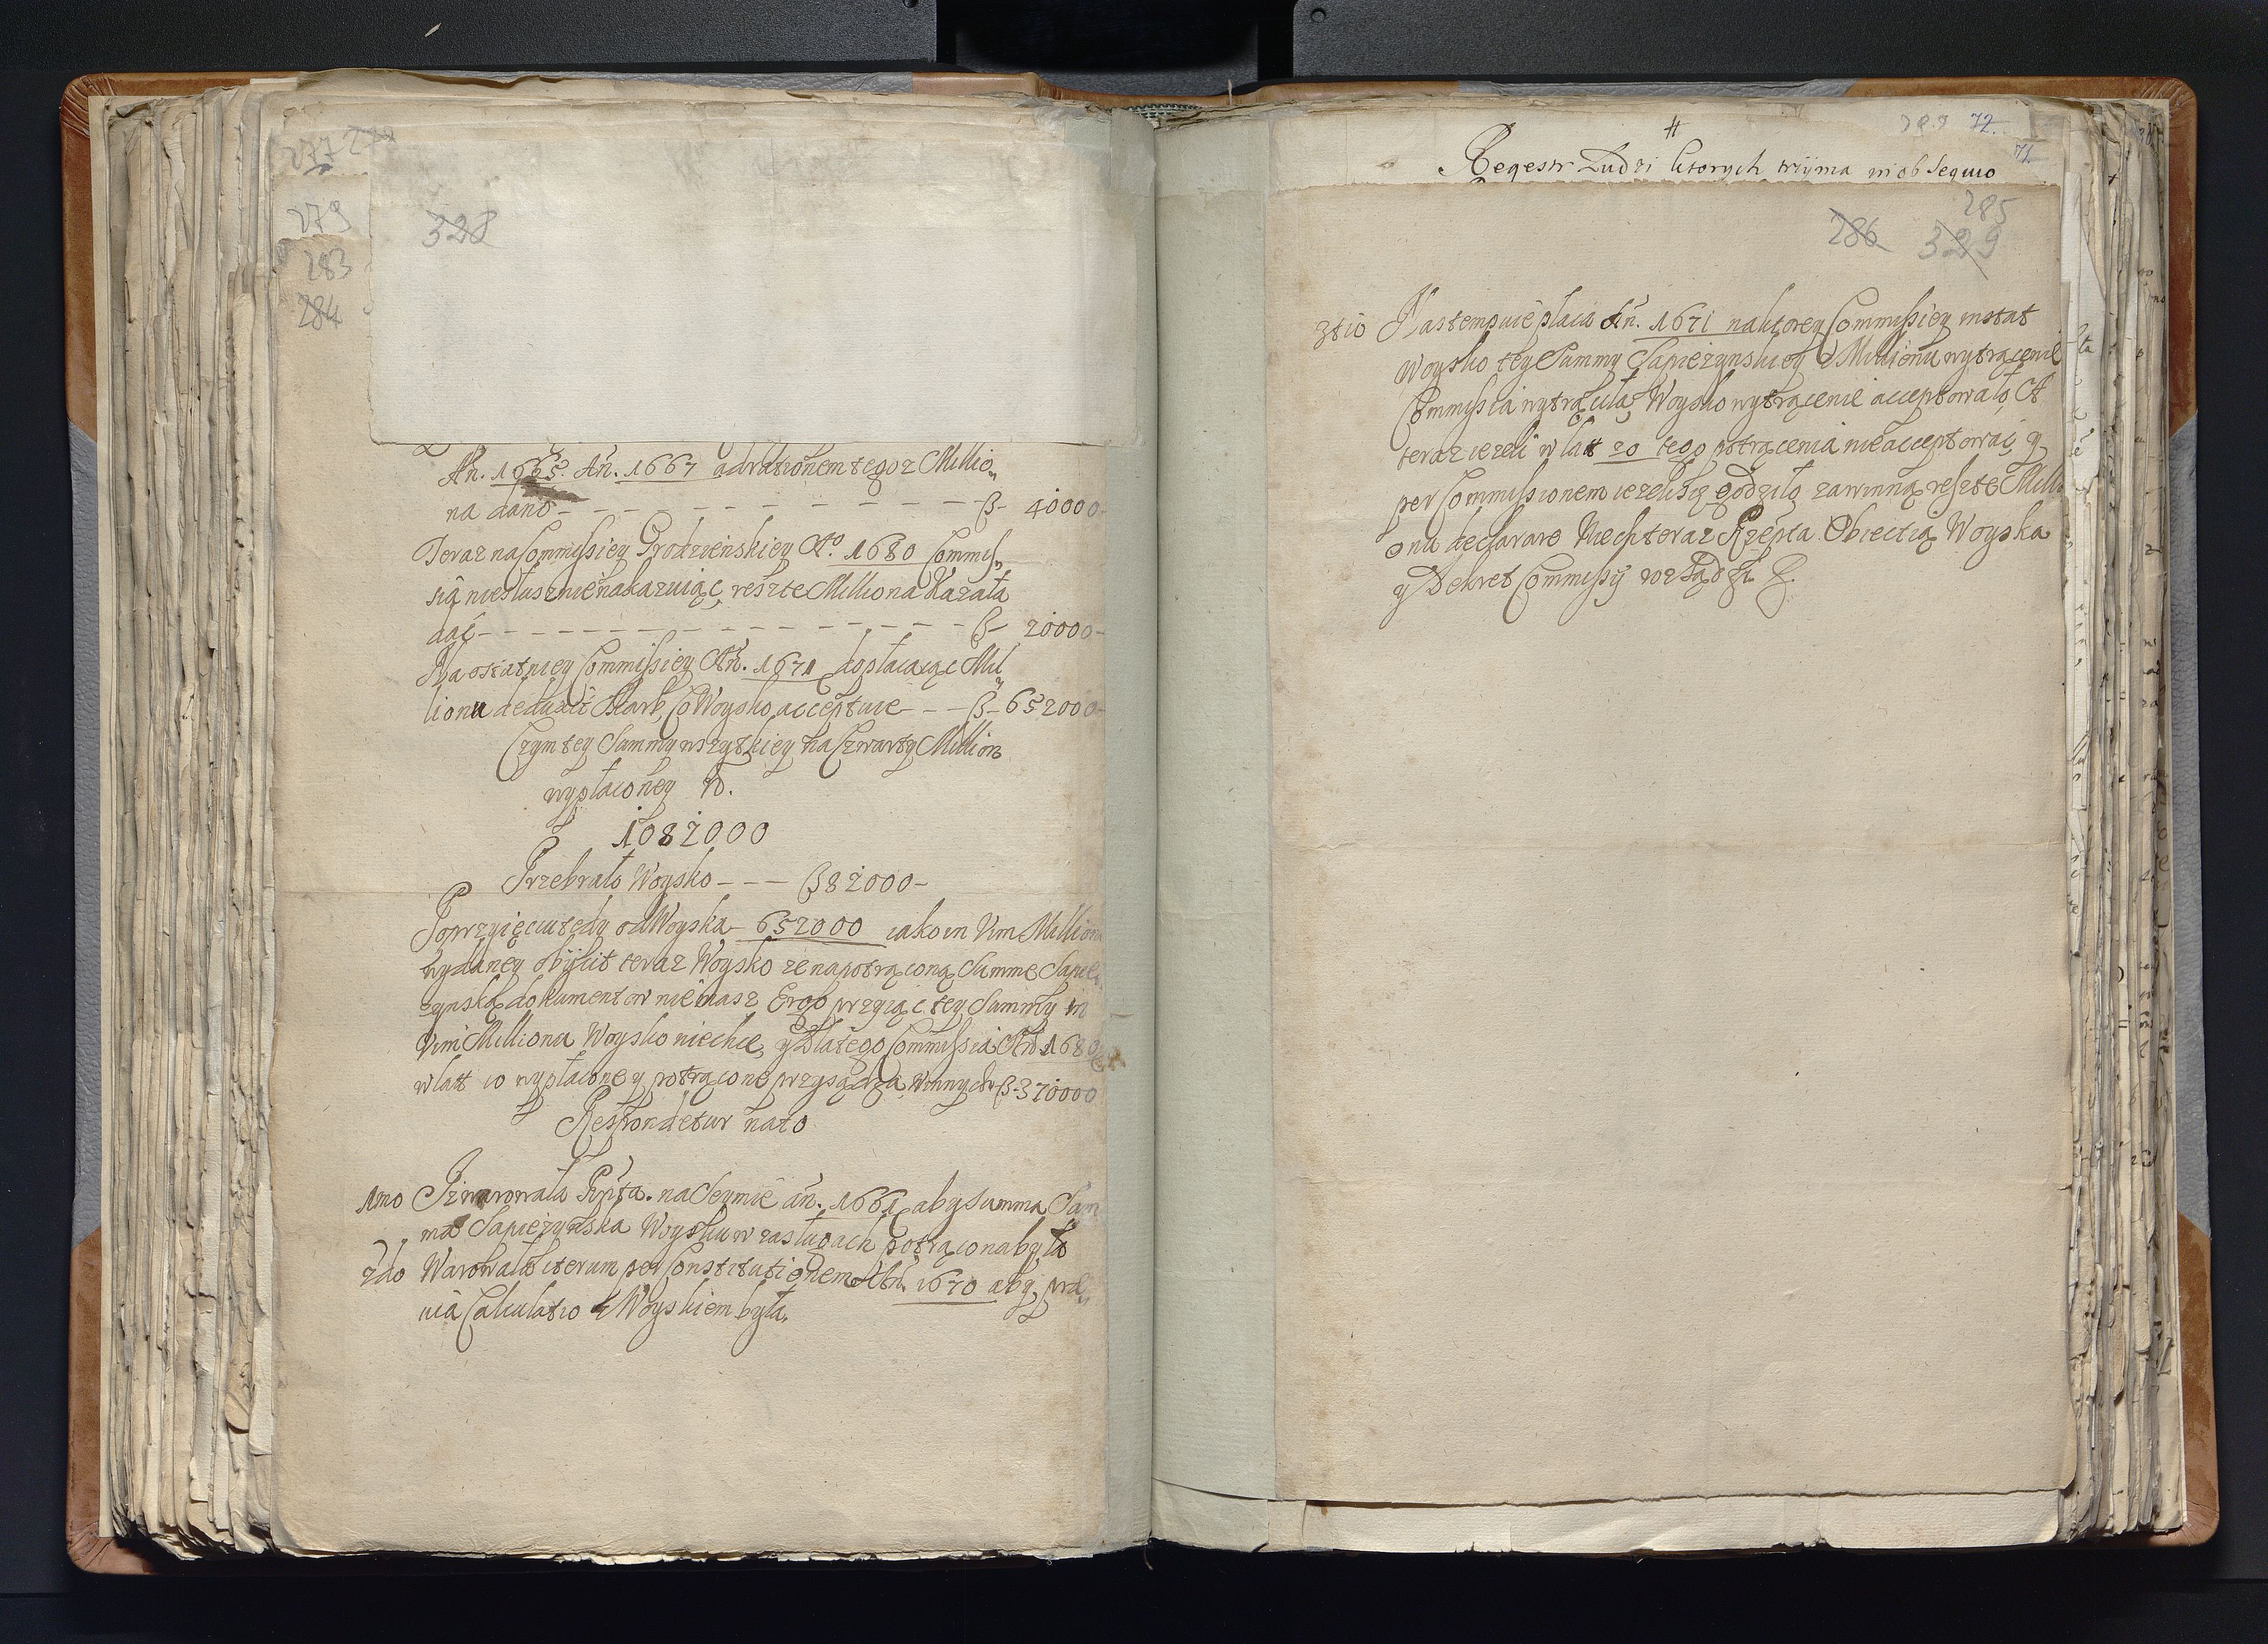 277
279
283
284
328
An. 1665. An. 1667 ad rationem tegoz Millio„
na dano - - - - - - - - - - β- 40000-
Teraz na Commissiey Grodzienskiey Ao. 1680 Commis„
sią niesłusznie nakazuiąc resztę Milliona Kazała
dać - - - - - - - - - - - - β- 20000-
Na ostatniey Commissiey An. 1671 dopłacaiąc Mil„
lionu deduxit Skarb, co Woysko acceptuie - - - β- 652000-
Czym tey Summy wszytkiey na Czwarty Million
wypłaconey
1082000
Przebrało Woysko - - - β 82000-
Po przyięciu tedy od Woyska 652000 iako in Vim Milliona
wydaney obijcit teraz Woysko ze na potrąconą Summe Sapie„
zynską dokumentow nie masz Ergo przyiąc tey Summy in
Vim Millionu Woysko niechce, y dlatego Commissia An 1680
w lat 10 wypłacone y potrącone przysądza, winnych β- 370000
Respondetur na to
1mo Izwarowała Rpta. na Seymie an. 1661 aby Summa Sam
ma Sapiezynska Woysku w zasługach potrącona była
2do Warowała iterum per Constitutionem An. 1670 aby pra„
via Calculatio z Woyskiem była.
#
72.
72
Regestr Ludzi ktorych trzyma in obsequio
285
286 329
3tio Nastempuie płaca An. 1671 na ktorey Commissiey instat
Woysko tey Summy Sapiezynskiey z Millionu wytrącenie
Commissia wytrąciła, Woysko wytrącenie acceptowało, A
teraz iezeli w lat 20 tego potrącenia nie acceptowac, y
per Commissionem iezeli się godziło za winną resztę Milli
onu declarare Niech teraz Rzepta Obiectią Woyska
y Dekret Commissij rozsądzi